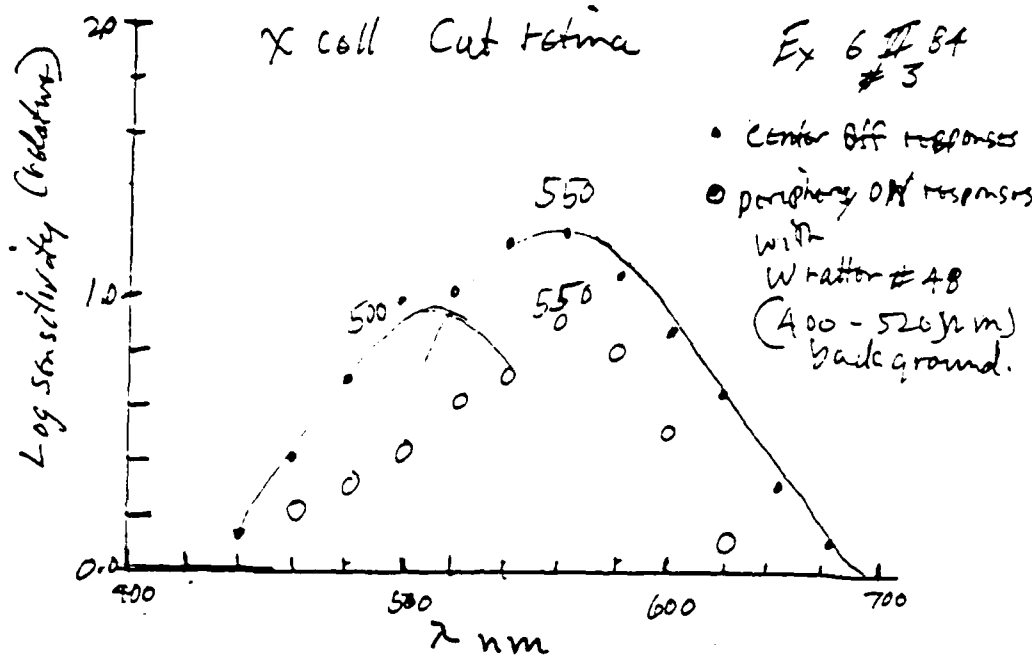 X cell Cat retina
Ex 6 II 84
# 3
• center off responses
O periphery ON responses
with
Wratten # 48
(400-520 nm)
background.
Log sensitivity (relative)
2.0
1.0
0.0
550
500
550
400
500
600
700
λ nm